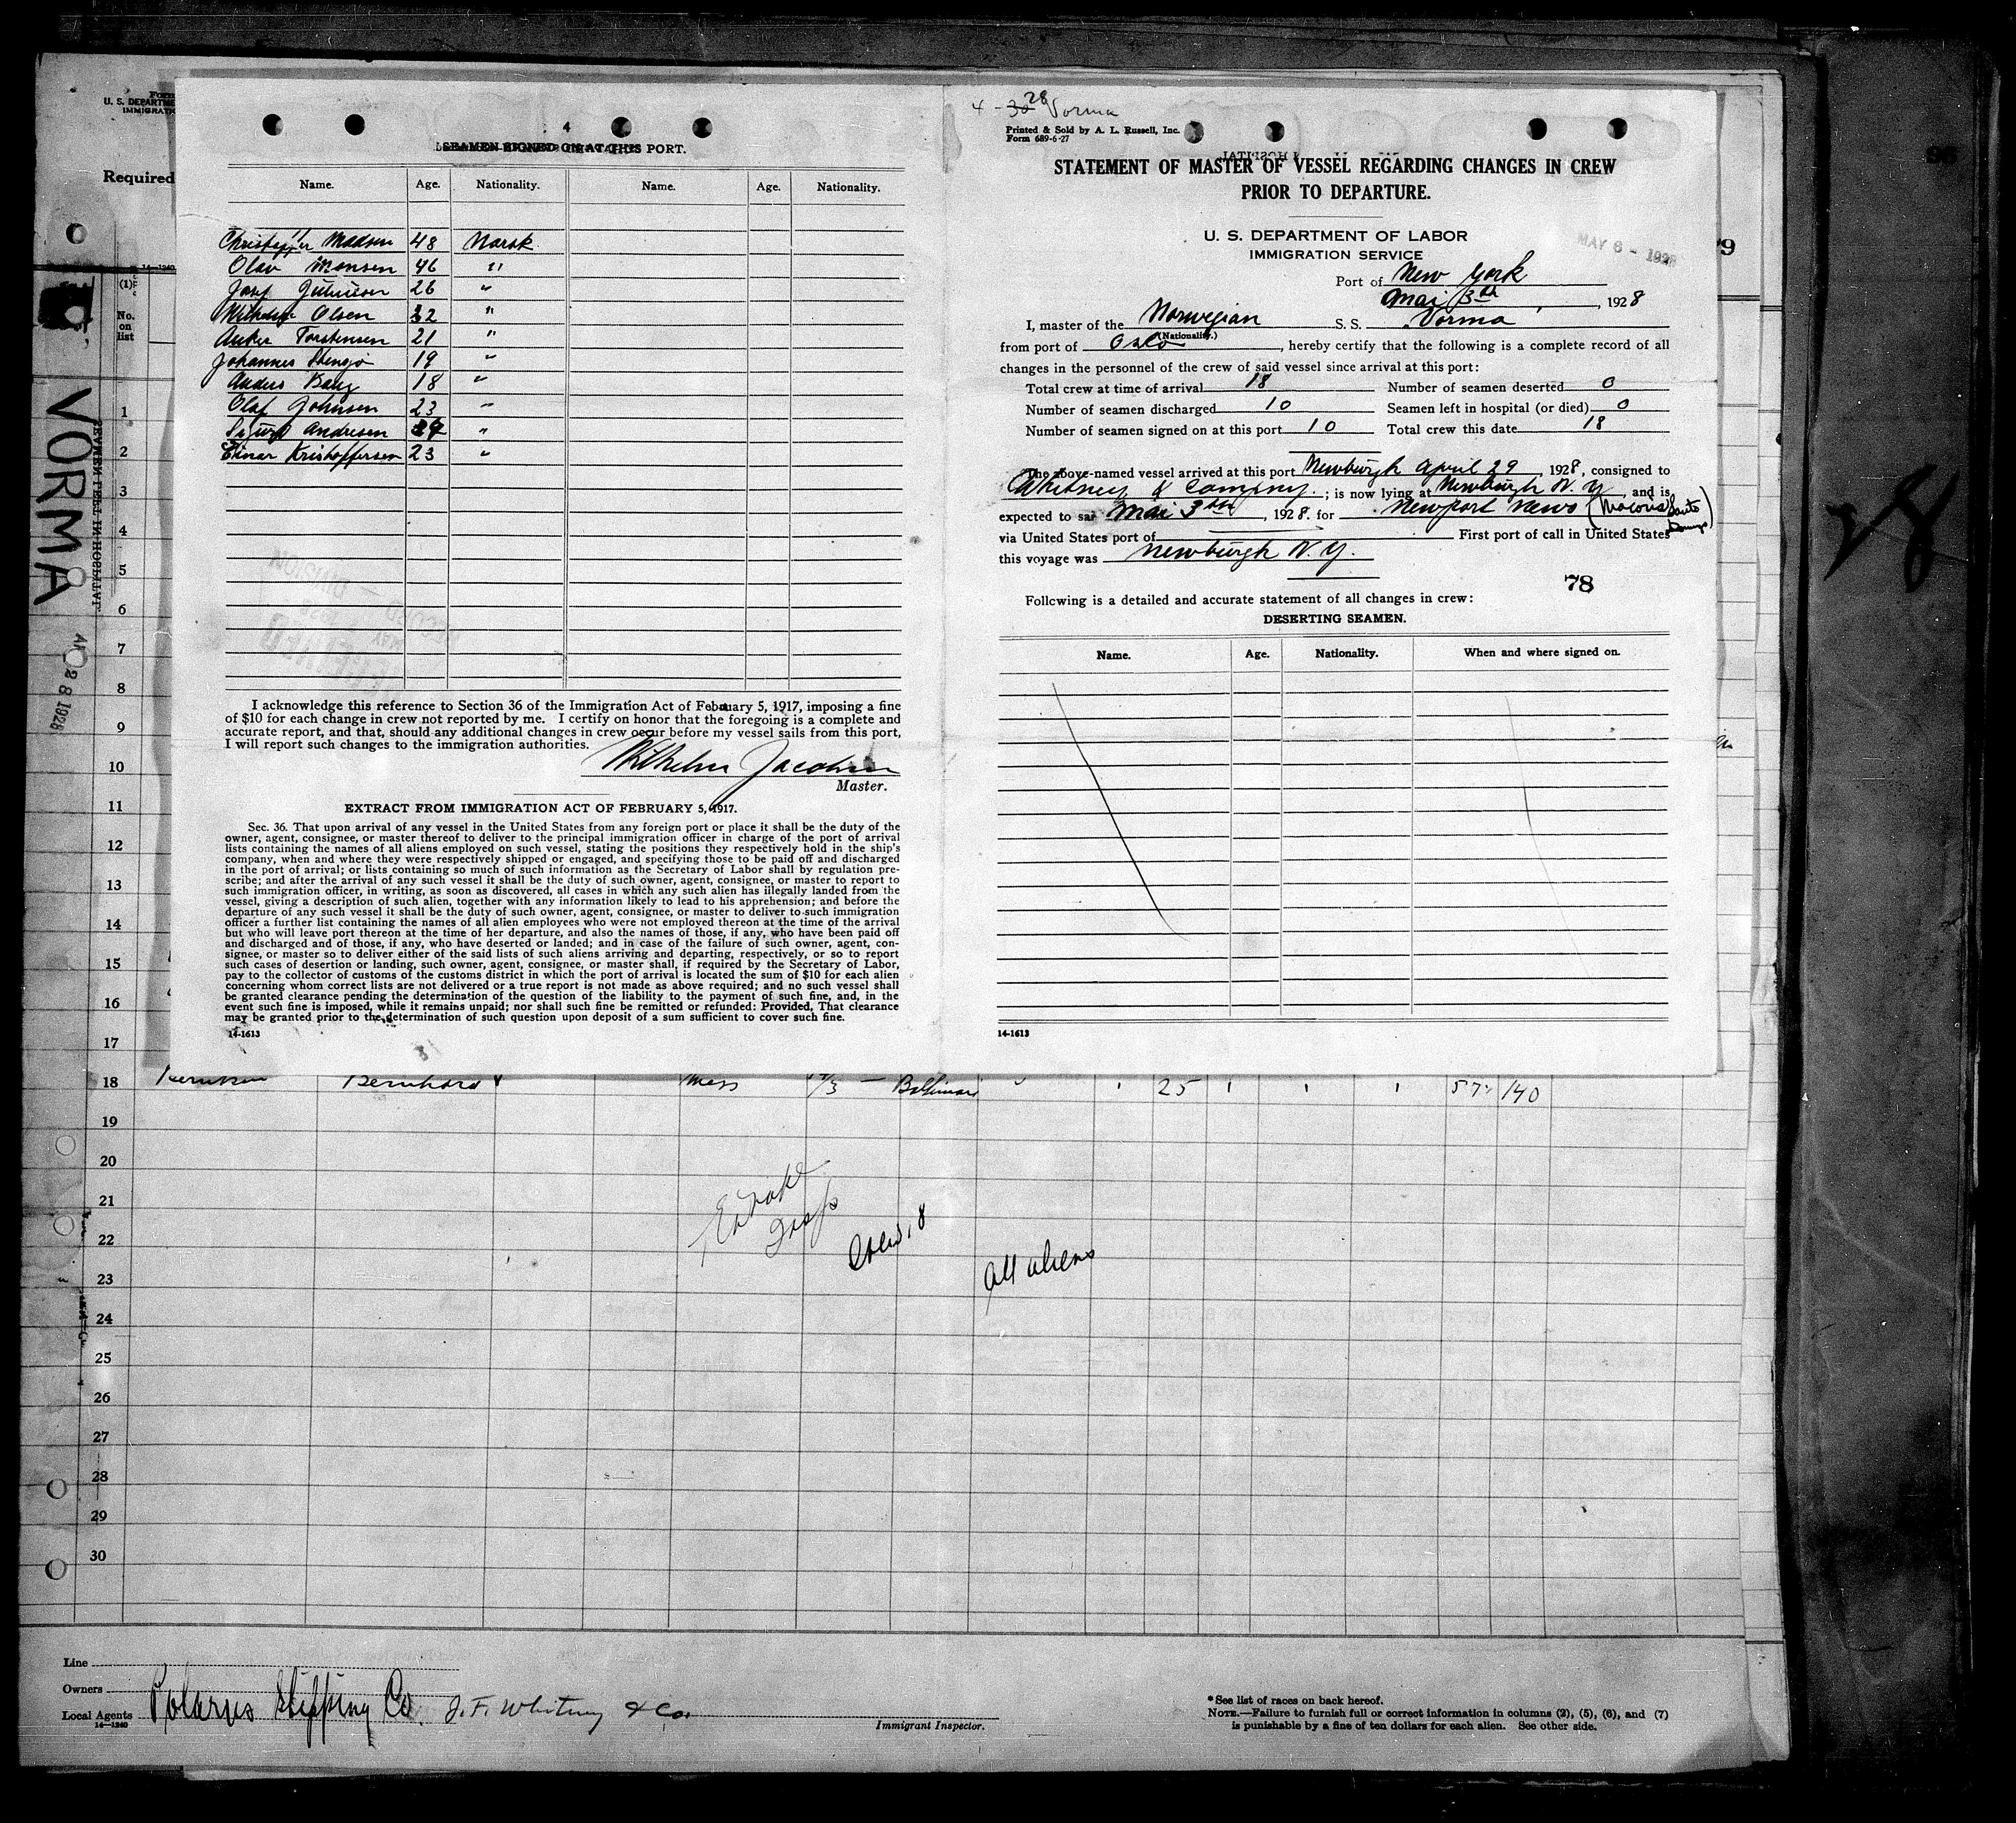 4
SEAMEN SIGNED ON AT THIS PORT.
Name. Age. Nationality. Name. Age. Nationality.
Madsen 48 Norsk
Olav Monsen 46 "
26 "
Olsen 32 "
Anker Torstensen 21 "
Johannes 19 "
Anders 18 "
Olaf Johnsen 23 "
Sigurd Andresen "
Einar Kristoffersen 23 "
I acknowledge this reference to Section 36 of the Immigration Act of February 5, 1917, imposing a fine
of $10 for each change in crew not reported by me. I certify on honor that the foregoing is a complete and
accurate report, and that, should any additional changes in crew occur before my vessel sails from this port,
I will report such changes to the immigration authorities.
Wilhelm Jacobsen
Master.
EXTRACT FROM IMMIGRATION ACT OF FEBRUARY 5, 1917.
Sec. 36. That upon arrival of any vessel in the United States from any foreign port or place it shall be the duty of the
owner, agent, consignee, or master thereof to deliver to the principal immigration officer in charge of the port of arrival
lists containing the names of all aliens employed on such vessel, stating the positions they respectively hold in the ship's
company, when and where they were respectively shipped or engaged, and specifying those to be paid off and discharged
in the port of arrival; or lists containing so much of such information as the Secretary of Labor shall by regulation pre-
scribe; and after the arrival of any such vessel it shall be the duty of such owner, agent, consignee, or master to report to
such immigration officer, in writing, as soon as discovered, all cases in which any such alien has illegally landed from the
vessel, giving a description of such alien, together with any information likely to lead to his apprehension; and before the
departure of any such vessel it shall be the duty of such owner, agent, consignee, or master to deliver to such immigration
officer a further list containing the names of all alien employees who were not employed thereon at the time of the arrival
but who will leave port thereon at the time of her departure, and also the names of those, if any, who have been paid off
and discharged and of those, if any, who have deserted or landed; and in case of the failure of such owner, agent, con-
signee, or master so to deliver either of the said lists of such aliens arriving and departing, respectively, or so to report
such cases of desertion or landing, such owner, agent, consignee, or master shall, if required by the Secretary of Labor,
pay to the collector of customs of the customs district in which the port of arrival is located the sum of $10 for each alien
concerning whom correct lists are not delivered or a true report is not made as above required; and no such vessel shall
be granted clearance pending the determination of the question of the liability to the payment of such fine, and, in the
event such fine is imposed, while it remains unpaid; nor shall such fine be remitted or refunded: Provided, That clearance
may be granted prior to the determination of such question upon deposit of a sum sufficient to cover such fine.
14-1613
4-30 28 Vorma
Printed & Sold by A. L. Russell, Inc.
Form 689-6-27
STATEMENT OF MASTER OF VESSEL REGARDING CHANGES IN CREW
PRIOR TO DEPARTURE.
U. S. DEPARTMENT OF LABOR
IMMIGRATION SERVICE
MAY 6 - 1928
Port of New York
Mai 3th, 1928
I, master of the Norwegian S. S. Vorma
(Nationality.)
from port of Oslo, hereby certify that the following is a complete record of all
changes in the personnel of the crew of said vessel since arrival at this port:
Total crew at time of arrival 18 Number of seamen deserted 0
Number of seamen discharged 10 Seamen left in hospital (or died) 0
Number of seamen signed on at this port 10 Total crew this date 18
The above-named vessel arrived at this port Newburgh April 29, 1928, consigned to
Whitney & Company; is now lying at Newburgh N.Y, and is
expected to sail Mai 3th, 1928, for Newport News (Macoris Santo Domingo)
via United States port of First port of call in United States
this voyage was Newburgh N.Y.
78
Following is a detailed and accurate statement of all changes in crew:
DESERTING SEAMEN.
Name. Age. Nationality. When and where signed on.
14-1613
Form
U. S. DEPARTME
IMMIGRATI
Required
14-1240
(1)
No.
on
list
VORMA
28 1928
1
2
3
4
5
6
7
8
9
10
11
12
13
14
15
16
17
18 Bernhard Mess Baltimore 25 140
19
20
21
22
23
24
25
26
27
28
29
30
Crew 18
All aliens
Line
Owners
Local Agents Polarus Shipping Co. J. F. Whitney & Co.
14-1240
Immigrant Inspector.
* See list of races on back hereof.
NOTE.—Failure to furnish full or correct information in columns (2), (5), (6), and (7)
is punishable by a fine of ten dollars for each alien. See other side.